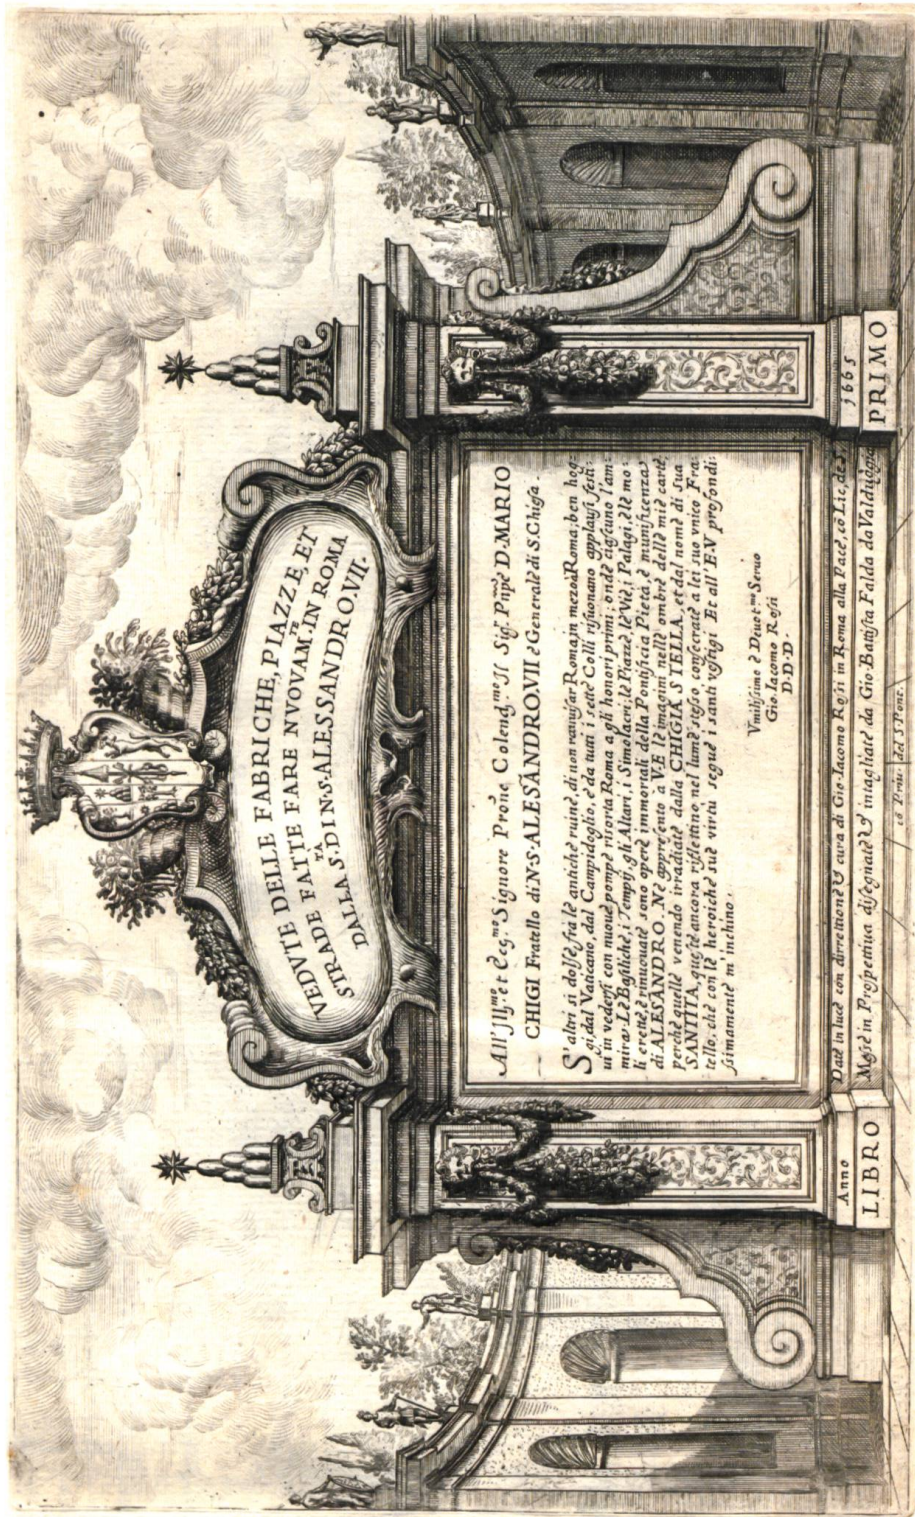 VEDVTE DELLE FABRICHE, PIAZZE, ET
STRADE FATTE FARE NVOVAM.TE IN ROMA
DALLA S.TA DI N.S. ALESSANDRO VII.
All' Ill.mo et Ecc.mo Signore Prone Colend.mo Il Sig.r Pnpē D. MARIO
CHIGI Fratello di N.S. ALESĀNDRO VII è Generale di S. Chiesa.
S'altri si dolse frà le antiche ruine, di non ravuisar Roma in mezo à Roma; ben hog
gi dal Vaticano, dal Campidoglio, e da tutti i sette Colli risuonano applausi festi:
ui in vedersi con nuoue pompe risorta Roma a gli honori primi; onde ciascuno l'am
mira. Le Basiliche, i Tempij, gli Altari, i Simolacri, le Piazze, le Vie, i Palagi, è le mo
li erette, è rinouate sono opere immortali della Pontificia Pietà, è munificenza
di ALESANDRO. Ne appresento à V.E. le imagini nelle ombre delle mie carte,
perche quelle venendo irradiate dalla CHIGIA STELLA, et dal nome di Sua
SANTITA, quete ancora riflettino nel lume stesso, consecrate à lei suo vnico Fra
tello, che con le heroiche sue virtù segue i santi vestigi. Et all' E.V. profondi:
simamente m'inchino.
Vmilissimo è Deuot.mo Seruo
Gio. Iacomo Rossi
D. D. D.
Date in luce con direttione, & cura di Gio. Iacomo Rossi in Roma alla Pace, cō Lic, de S.
Messe in Prospettiua disegnate & intagliate da Gio. Battista Falda da Valduggia
cō Priu. del S. Pont.
Anno 1665
LIBRO PRIMO